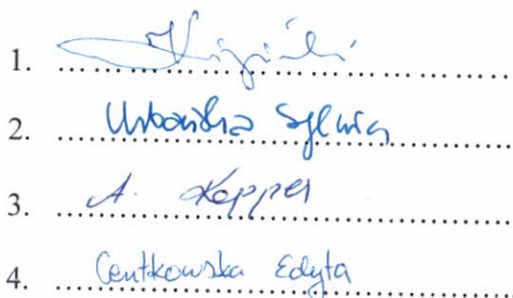 1.
2. Urbańska Sylwia
3. A. Kepper
4. Centkowska Edyta